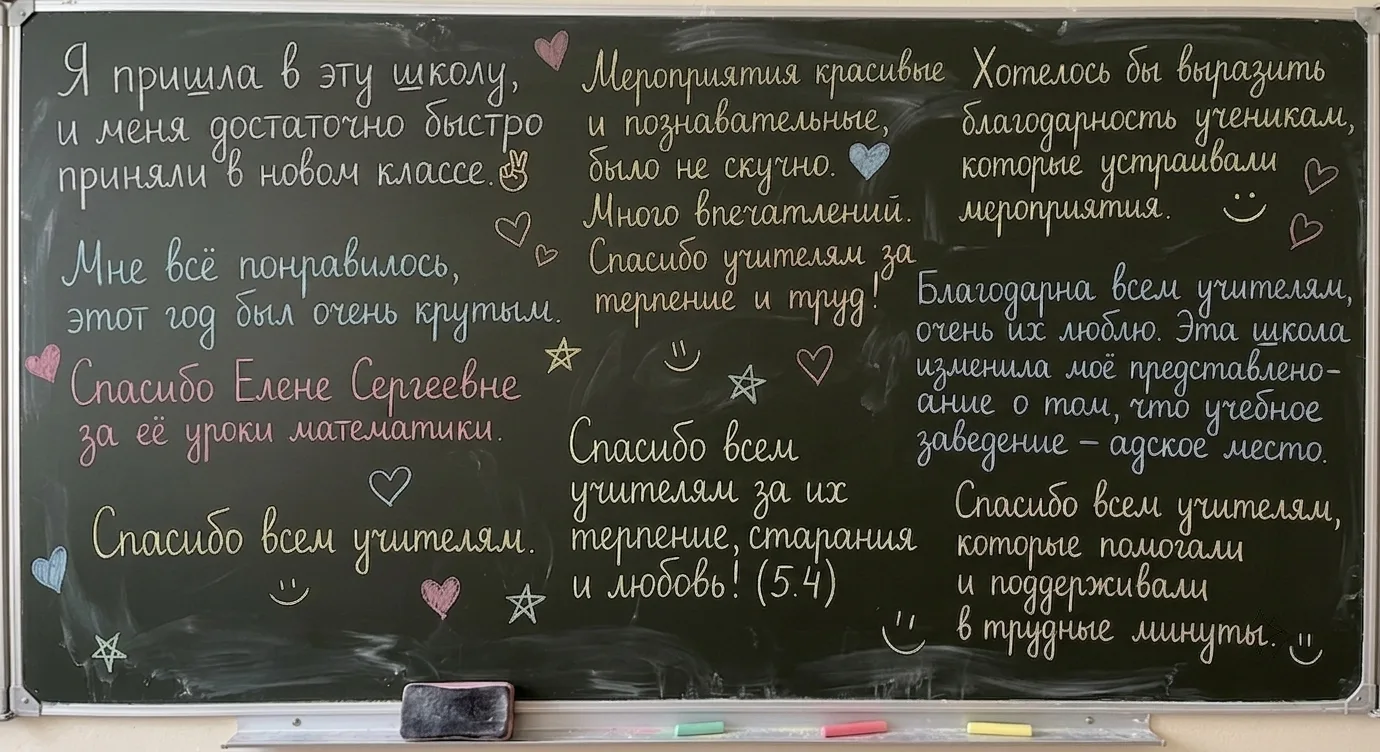 Я пришла в эту школу,
и меня достаточно быстро
приняли в новом классе.
Мне всё понравилось,
этот год был очень крутым.
Спасибо Елене Сергеевне
за её уроки математики.
Спасибо всем учителям.
Мероприятия красивые
и познавательные,
было не скучно.
Много впечатлений.
Спасибо учителям за
терпение и труд!
Спасибо всем
учителям за их
терпение, старания
и любовь! (5.4)
Хотелось бы выразить
благодарность ученикам,
которые устраивали
мероприятия.
Благодарна всем учителям,
очень их люблю. Эта школа
изменила моё представлено-
ание о том, что учебное
заведение – адское место.
Спасибо всем учителям,
которые помогали
и поддерживали
в трудные минуты.